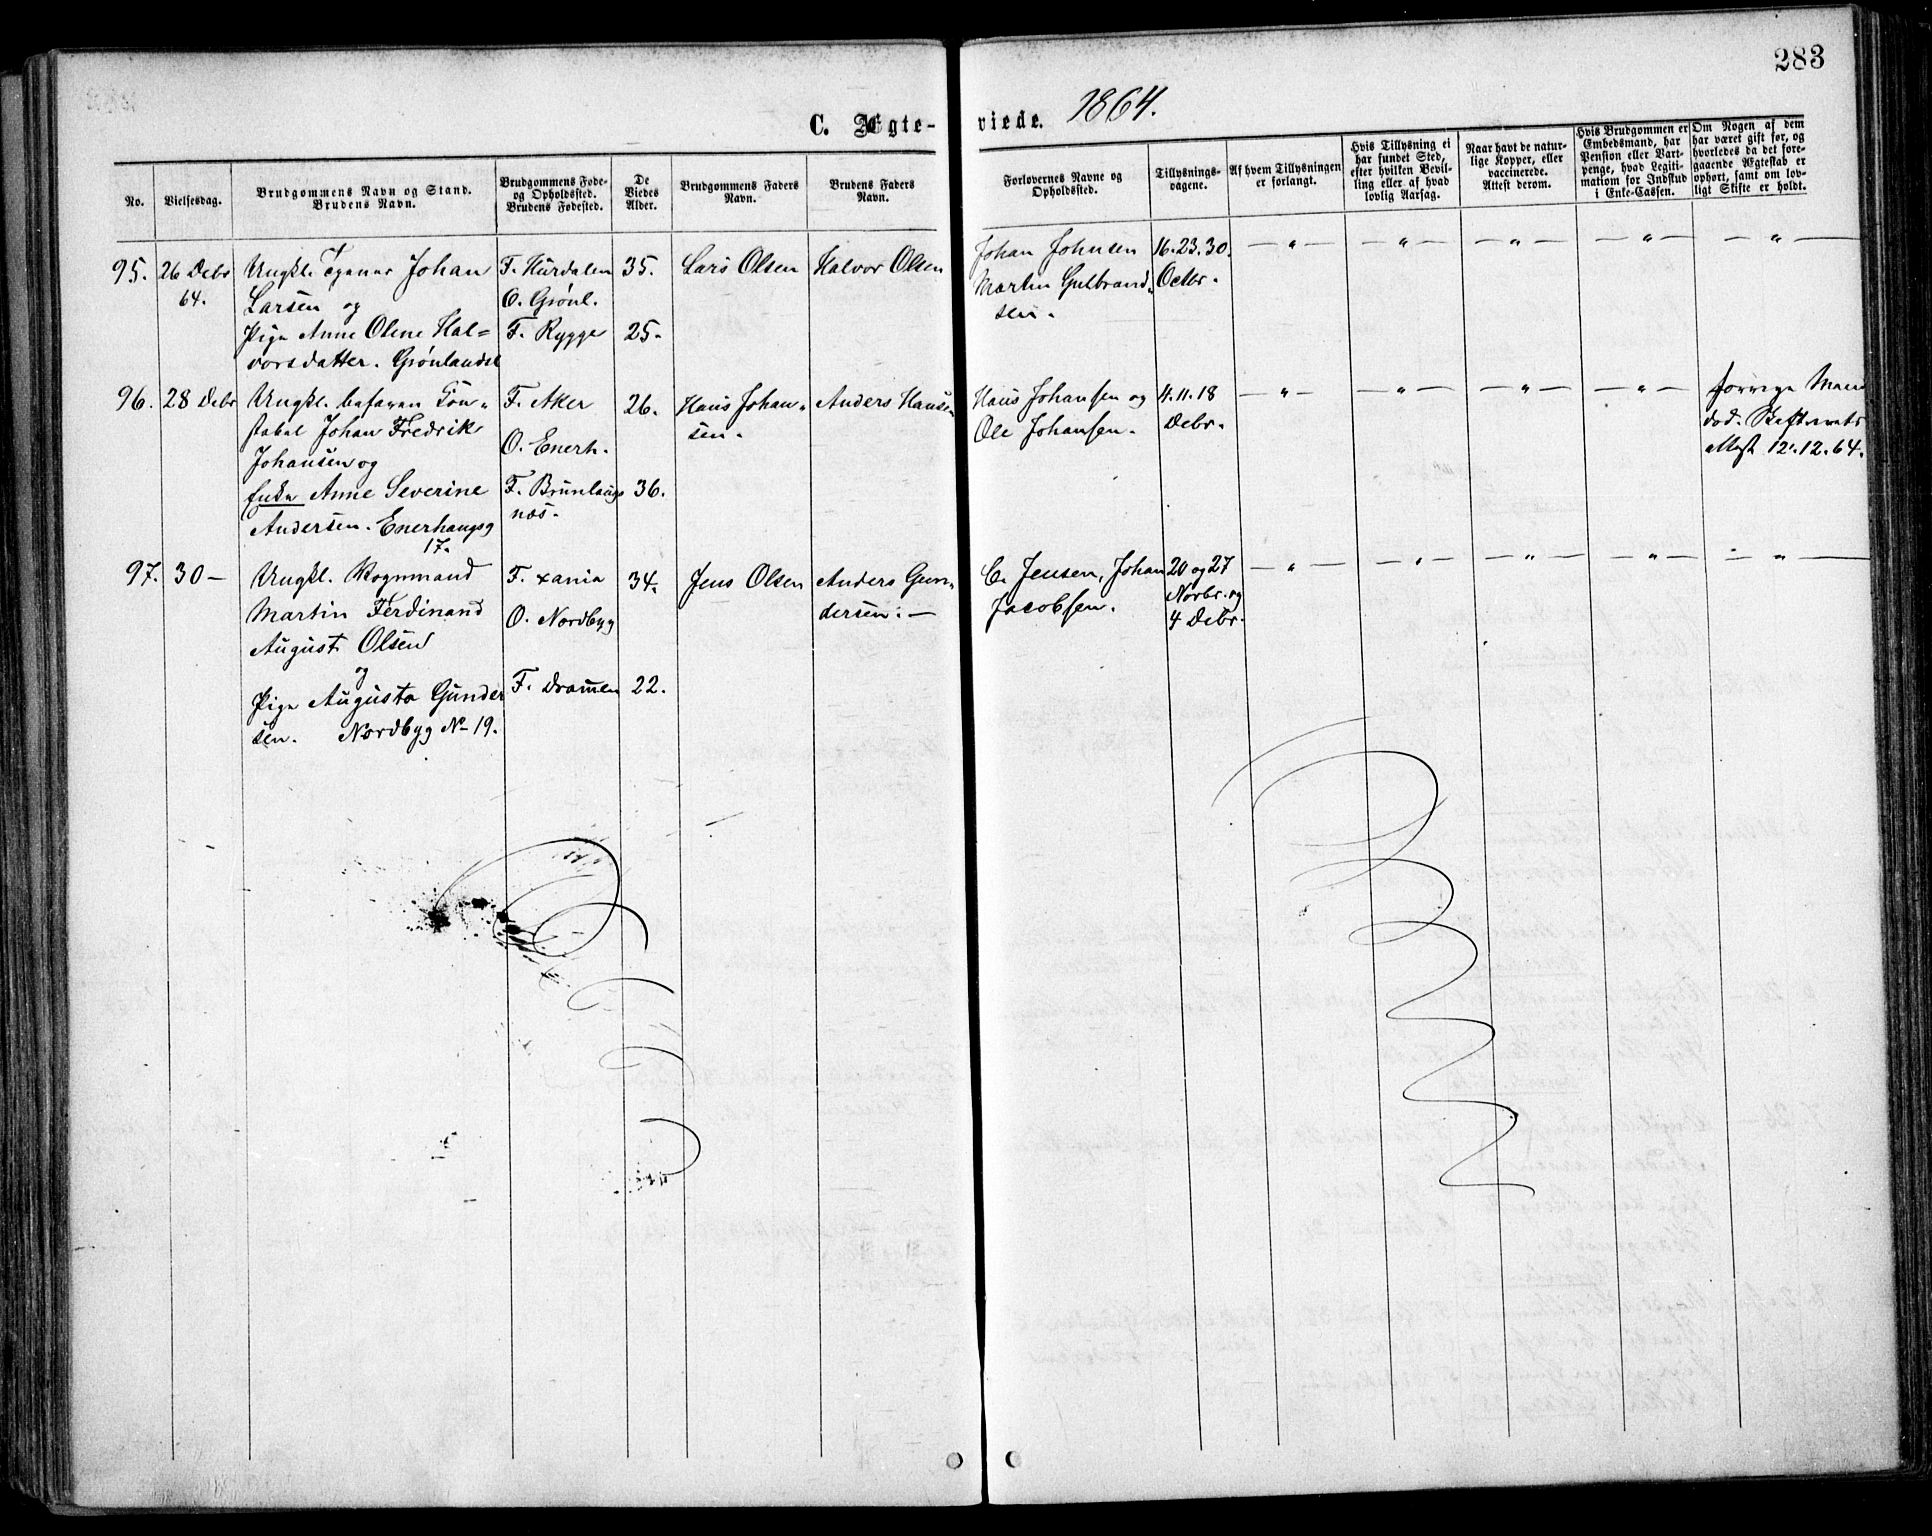 283
C. Ægte-
viede. 1864.
No.
Vielsesdag.
Brudgommens Navn og Stand.
Brudens Navn.
Brudgommens Føde-
og Opholdssted.
Brudens Fødested.
De
Viedes
Alder.
Brudgommens Faders
Navn.
Brudens Faders
Navn.
Forlovernes Navne og
Opholdssted.
Tillysnings-
dagene.
Af hvem Tillysningen
er forlangt.
Hvis Tillysning ei
har fundet Sted,
efter hvilken Bevil-
ling eller af hvad
lovlig Aarsag.
Naar havt de natur-
lige Kopper, eller
vaccinerede.
Attest derom.
Hvis Brudgommen er
Embedsmand, har
Pension eller Vart-
penge, hvad Legiti-
mation for Indskud
i Enke-Cassen.
Om Nogen af dem
har været gift før, og
hvorledes da det fore-
gaaende Ægteskab er
ophørt, samt om lov-
ligt Skifte er holdt.
95. 26 Debr
64.
Ungkl. Johan
Larsen og
Pige Anne Olene Hal=
vorsdatter. Grønlandsl
F. Hurdalen
O. Grönl.
F. Rygge
35.
25.
Lars Olsen
Halvor Olsen
Johan Johnsen
Martin Gulbrand„
sen.
16. 23. 30.
Octbr.
— „ — — „ — — „ — — „ — — „ —
96. 28 Debr
Ungkl. Kon„
stabel Johan Fredrik
Johansen og
Enke Anne Severine
Andersen. Enerhaugsg
17.
F. Aker
O. Enerh.
F. Brunlaugs
næs.
26.
36.
Hans Johan„
sen.
Anders Hansen
Hans Johansen og
Ole Johansen.
4. 11. 18
Debr.
— „ — — „ — — „ — — „ —
forrige Mand
død. Skifteretts
Attest 12.12.64.
97. 30 —
Ungkl. Vognmand
Martin Ferdinand
August Olsen
og
Pige Augusta Gunder
sen. Nordbyg No 19.
F. xania
O. Nordbyg
F. Dramen
34.
22.
Jens Olsen
Anders Gun„
dersen. —
C. Jensen, Johan
Jacobsen.
20 og 27
Novbr. og
4 Debr.
— „ — — „ — — „ — — „ — — „ —